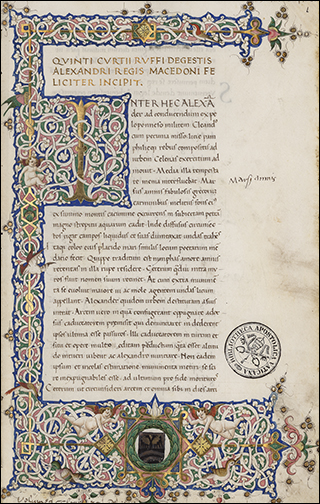 QVINTI CVRTII RVFFI DEGESTIS
ALEXANDRI REGIS MACEDONI FE
LICITER INCIPIT.
INTER HEC ALEXĀ
der ad conducendum ex pe
loponneso militem Cleand
cum pecunia misso
rebus compositis ad
urbem Celenas exercitum ad
mouit Media illa tempesta
te menia interfluebat Mar
sias amnis fabulosis grecorum
carminibus inclitus fons
ex summo montis cacumine excurrens in subiectam petra
magno strepitu aquarum cadit Inde diffusus circumiec
tos rigat campos liquidus et suas dumtaxat undas trahe
color eius placido mari similis locum poetarum me
dacio fecit Quippe traditum est nymphas amore amnis
retentas in illa rupe residere Ceterum quandiu intra mu
ros fluit nomen suum tenet Ac cum extra munimen
ta se euoluit maiore ui ac mole agentem undas licum
appellant Alexander quidem urbem destitutam a suis
intrat Arcem uero in quam confugerant oppugnare ador
sus caduceatorem premisit qui denunciaret ni dederent
ipsos ultima esse passuros Illi caduceatorem in turrem et
situ et opere multo editam perductum quanta esset altitu
do intueri iubent ac Alexandro nunciare Non eadem
ipsum et incolas estimatione munimenta metiri se sci
re inexpugnabiles esse ad ultimum pro fide morituros
Ceterum ut circumsideri arcem et omnia sibi in dies
Marsias amnis
BIBLIOTHECA APOSTOLICA VATICANA